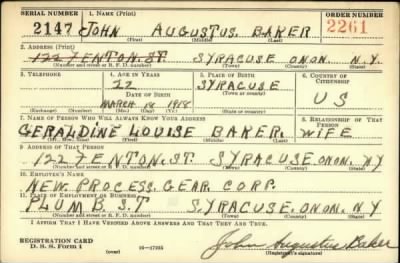 SERIAL NUMBER 1. NAME (Print) ORDER NUMBER
2147 JOHN AUGUSTUS. BAKER 2261
(First) (Middle) (Last)
2. ADDRESS (Print)
122 FENTON. ST. SYRACUSE ONON. N.Y.
(Number and street or R. F. D. number) (Town) (County) (State)
3. TELEPHONE 4. AGE IN YEARS 5. PLACE OF BIRTH 6. COUNTRY OF CITIZENSHIP
22 SYRACUSE
DATE OF BIRTH
MARCH 18 1918 U S
(Exchange) (Number) (Mo.) (Day) (Yr.) (State or country)
7. NAME OF PERSON WHO WILL ALWAYS KNOW YOUR ADDRESS 8. RELATIONSHIP OF THAT PERSON
GERALDINE LOUISE BAKER. WIFE
(Mr., Mrs., Miss) (First) (Middle) (Last)
9. ADDRESS OF THAT PERSON
122 FENTON. ST. SYRACUSE. ONON. NY
(Number and street or R. F. D. number) (Town) (County) (State)
10. EMPLOYER'S NAME
NEW. PROCESS. GEAR CORP.
11. PLACE OF EMPLOYMENT OR BUSINESS
PLUMB. S.T SYRACUSE, ONON. N.Y
(Number and street or R. F. D. number) (Town) (County) (State)
I AFFIRM THAT I HAVE VERIFIED ABOVE ANSWERS AND THAT THEY ARE TRUE.
REGISTRATION CARD
D. S. S. Form 1 John Augustus Baker
(Registrant's signature)